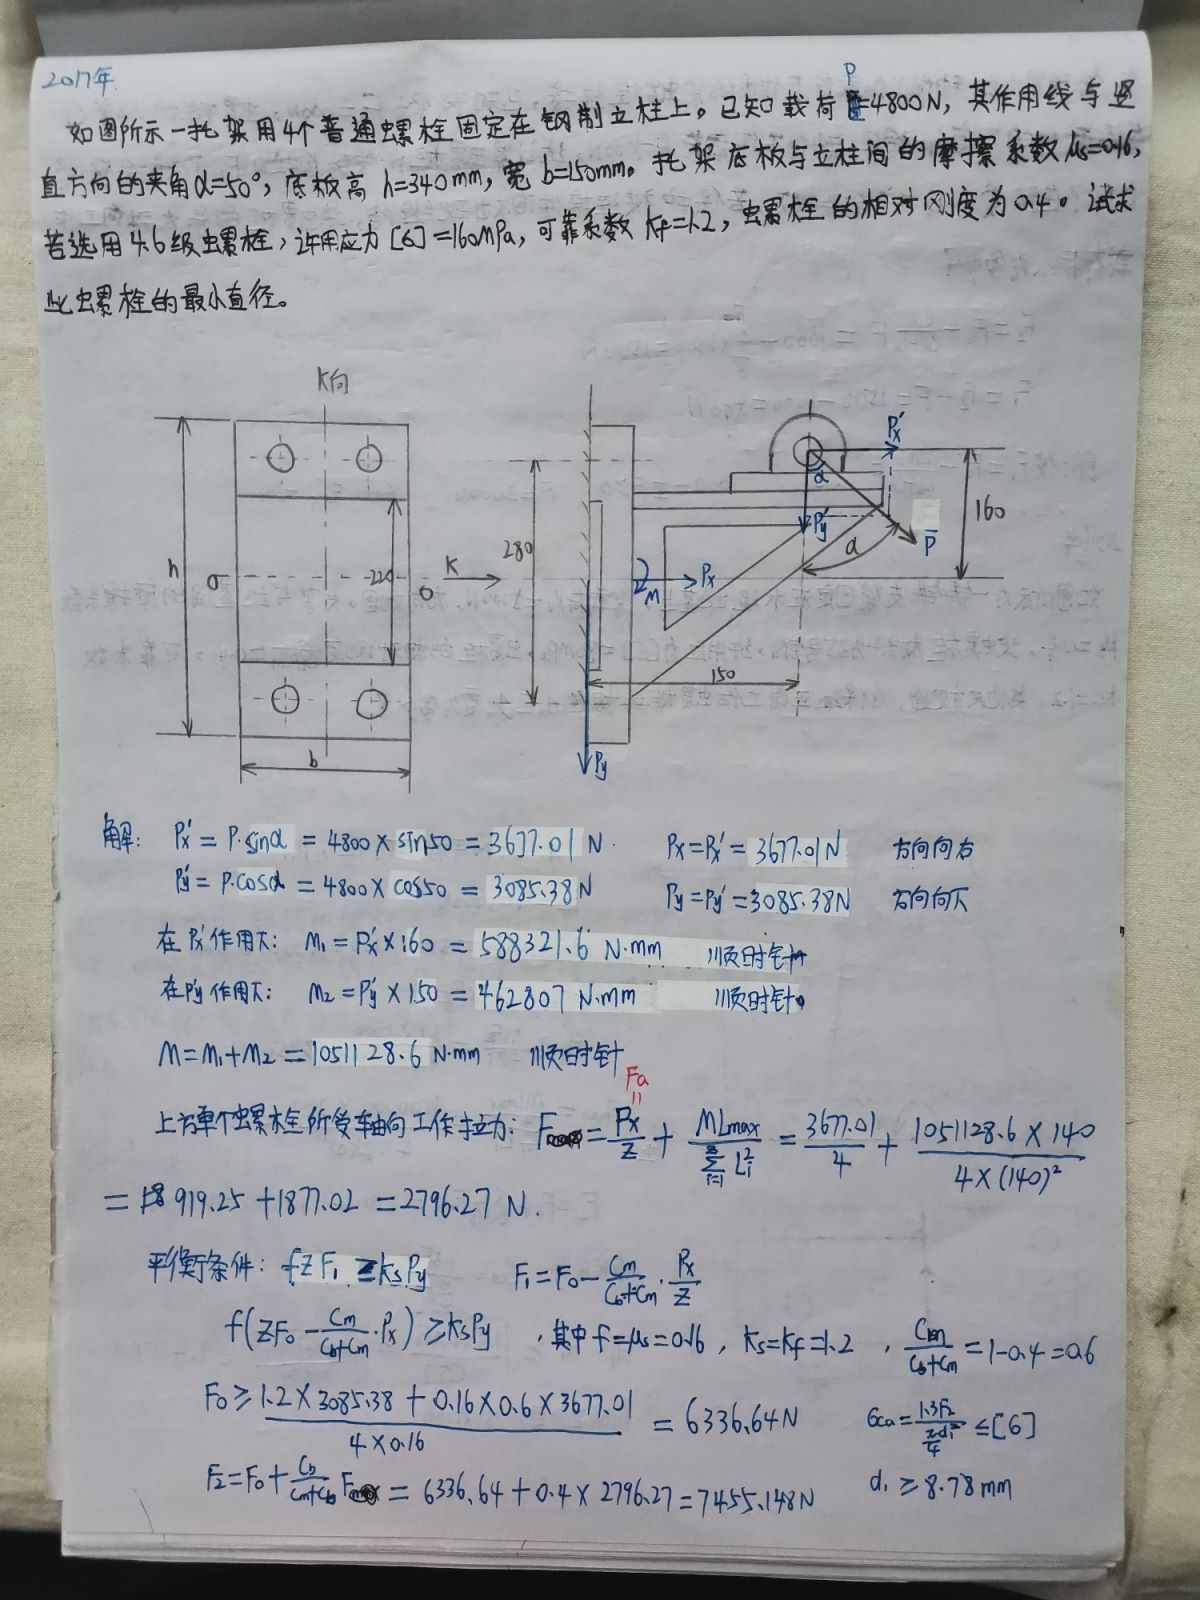 2017年
如图所示一托架用4个普通螺栓固定在钢制立柱上。已知载荷P=4800N,其作用线与竖
直方向的夹角α=50°,底板高 h=340mm,宽b=150mm。托架底板与立柱间的摩擦系数μs=0.16,
若选用4.6级螺栓,许用应力[σ]=160MPa,可靠系数 Kf=1.2,螺栓的相对刚度为0.4。试求
此螺栓的最小直径。
K向
h
b
220
O
O
K
280
M
Px
Py
Px'
Py'
α
α
P
160
150
解: Px'=P·sinα=4800×sin50=3677.01N Px=Px'=3677.01N 方向向右
Py'=P·cosα=4800×cos50=3085.38N Py=Py'=3085.38N 方向向下
在Px'作用下: M1=Px'×160=588321.6 N·mm 顺时针
在Py'作用下: M2=Py'×150=462807 N·mm 顺时针
M=M1+M2=1051128.6 N·mm 顺时针
Fa
=
上方单个螺栓所受轴向工作拉力: F=Px/z+MLmax/∑(i=1,z)Li²=3677.01/4+1051128.6×140/4×(140)²
=919.25+1877.02=2796.27 N.
平衡条件: fzF1≥KsPy F1=F0-Cm/(Cb+Cm)·Px/z
f(zF0-Cm/(Cb+Cm)·Px)≥KsPy ,其中f=μs=0.16, Ks=Kf=1.2, Cm/(Cb+Cm)=1-0.4=0.6
F0≥(1.2×3085.38+0.16×0.6×3677.01)/(4×0.16)=6336.64N σca=1.3F2/(πd1²/4)≤[σ]
F2=F0+Cb/(Cm+Cb)F=6336.64+0.4×2796.27=7455.148N d1≥8.78mm